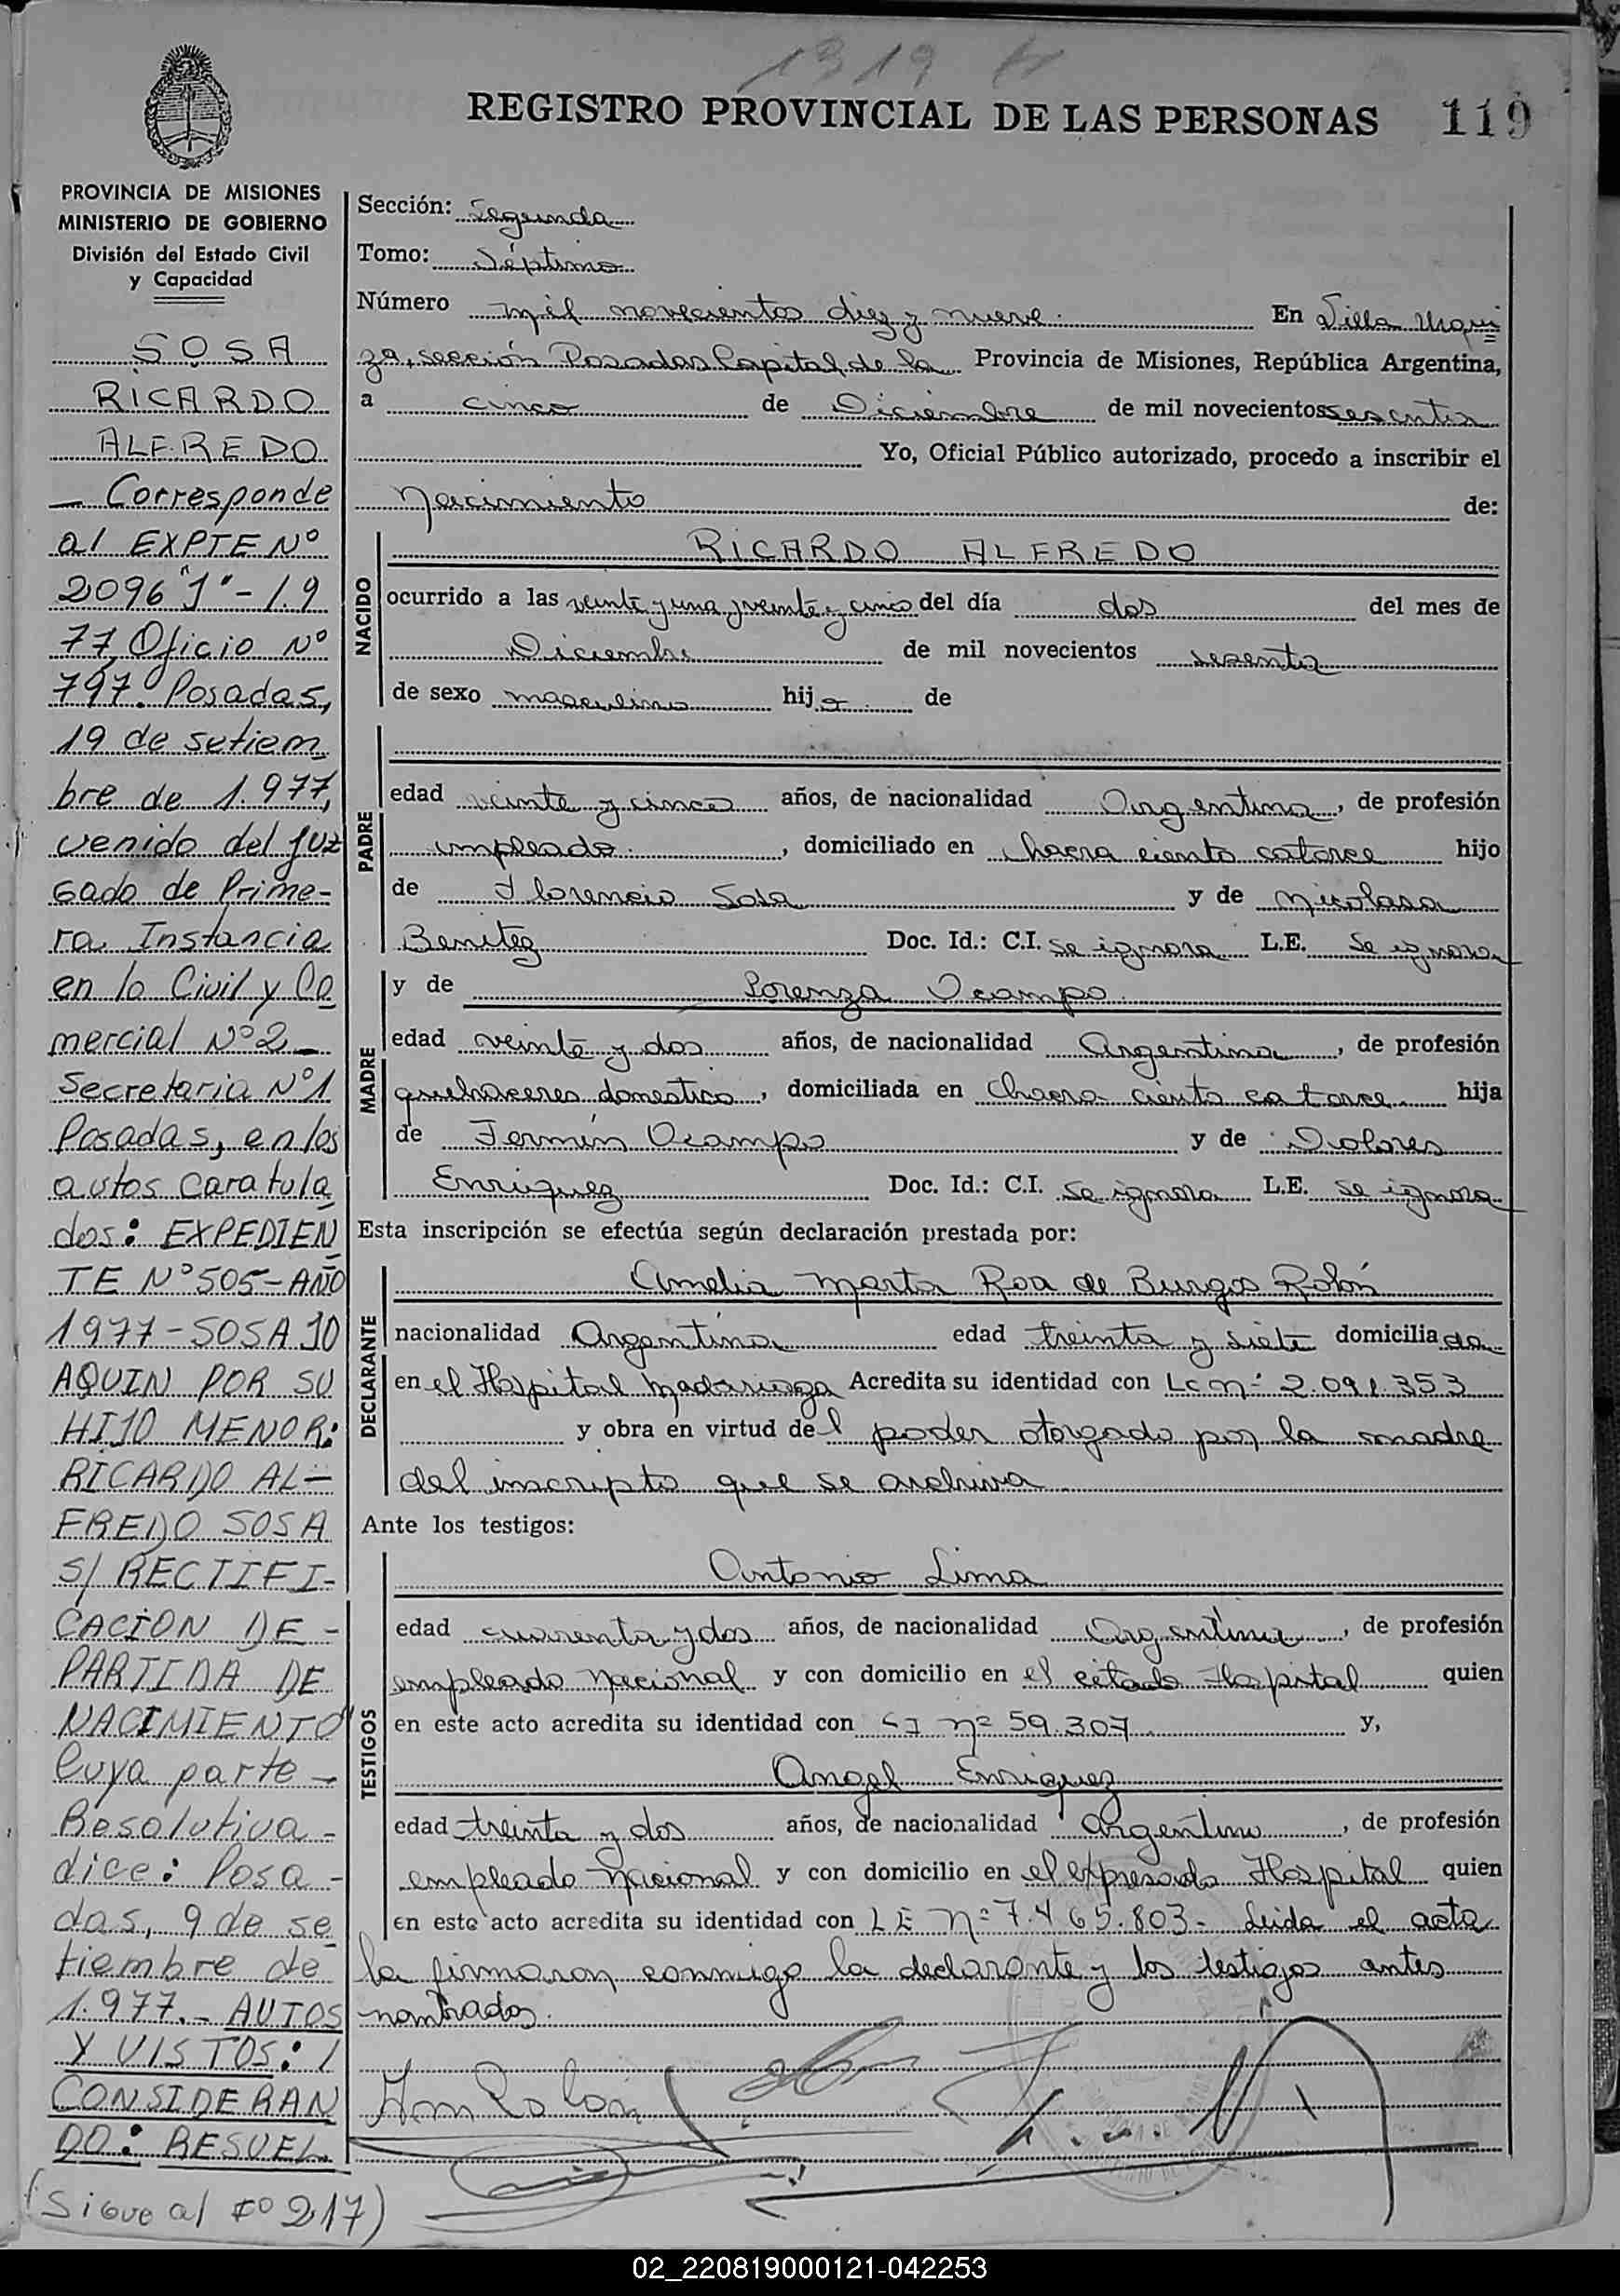 1919
REGISTRO PROVINCIAL DE LAS PERSONAS 119
PROVINCIA DE MISIONES
MINISTERIO DE GOBIERNO
División del Estado Civil
y Capacidad
SOSA
RICARDO
ALFREDO
— Corresponde
al EXPTE Nº
2096 "J" - 1.9
77 Oficio Nº
797. Posadas,
19 de setiem
bre de 1.977,
venido del Juz
gado de Prime-
ra Instancia
en lo Civil y Co
mercial Nº 2 —
Secretaria Nº 1
Posadas, en los
autos caratula
dos: EXPEDIEN
TE Nº 505 - AÑO
1977 - SOSA JO
AQUIN POR SU
HIJO MENOR:
RICARDO AL-
FREDO SOSA
S/ RECTIFI-
CACION DE -
PARTIDA DE
NACIMIENTO"
Cuya parte -
Resolutiva -
dice: Posa -
das, 9 de se
tiembre de
1.977.- AUTOS
Y VISTOS: /
CONSIDERAN
DO: RESUEL.
(Sigue al Fº 217)
Sección: Segunda
Tomo: Séptimo
Número mil novecientos diez y nueve. En Villa Urqui
za, sección Posadas Capital, de la Provincia de Misiones, República Argentina,
a cinco de Diciembre de mil novecientos sesenta
Yo, Oficial Público autorizado, procedo a inscribir el
Nacimiento de:
NACIDO
RICARDO ALFREDO
ocurrido a las veinte y una y veinte y cinco del día dos del mes de
Diciembre de mil novecientos sesenta
de sexo masculino hijo de
PADRE
edad veinte y cinco años, de nacionalidad Argentina, de profesión
empleado, domiciliado en Chacra ciento catorce hijo
de Florencio Sosa y de Nicolasa
Benitez Doc. Id.: C.I. se ignora L.E. Se ignora
MADRE
y de Lorenza Ocampo
edad veinte y dos años, de nacionalidad Argentina, de profesión
quehaceres domestico, domiciliada en Chacra ciento catorce hija
de Fermín Ocampo y de Dolores
Enriquez Doc. Id.: C.I. Se ignora L.E. se ignora
Esta inscripción se efectúa según declaración prestada por:
DECLARANTE
Amelia Marta Roa de Burgos Rolón
nacionalidad Argentina edad treinta y siete domiciliada
en el Hospital Madariaga Acredita su identidad con Lc nº 2.091.353
y obra en virtud del poder otorgado por la madre
del inscripto que se archiva
Ante los testigos:
TESTIGOS
Antonio Lima
edad cuarenta y dos años, de nacionalidad Argentina, de profesión
empleado Nacional y con domicilio en el citado Hospital quien
en este acto acredita su identidad con CI nº 59.307 y,
Angel Enriquez
edad treinta y dos años, de nacionalidad Argentino, de profesión
empleado Nacional y con domicilio en el expresado Hospital quien
en este acto acredita su identidad con LE Nº 7.465.803- Leida el acta
la firmaron conmigo la declarante y los testigos antes
nombrados.
02_220819000121-042253